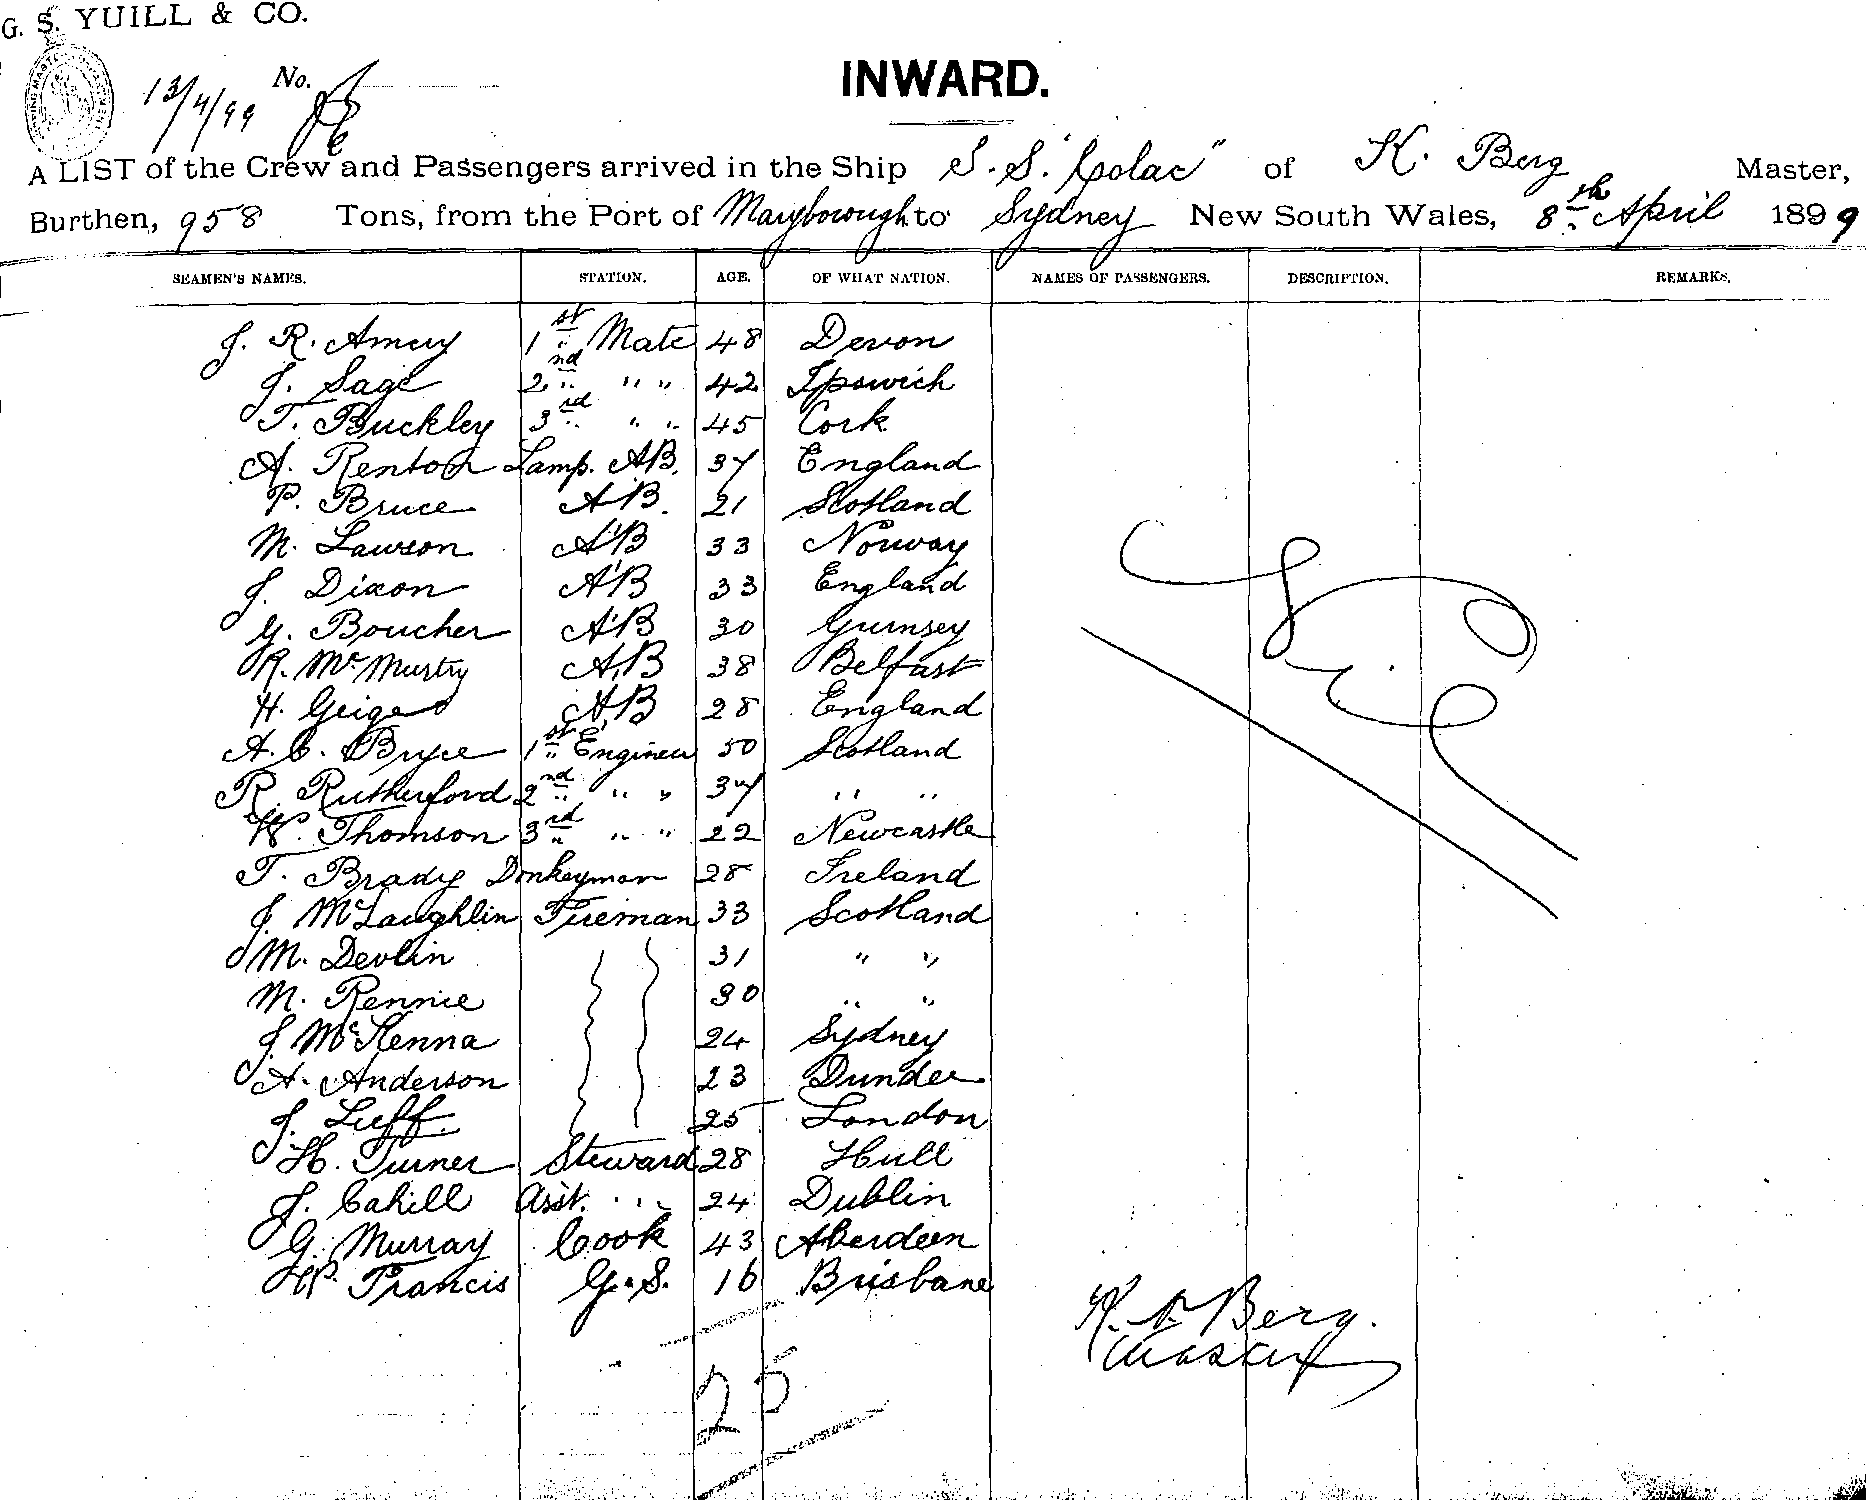 G. S. YUILL & CO.
13/4/99 No.
INWARD.
A LIST of the Crew and Passengers arrived in the Ship S. S. "Colac" of K. Berg Master,
Burthen, 958 Tons, from the Port of Maryborough to Sydney New South Wales, 8th April 1899
SEAMEN'S NAMES. STATION. AGE. OF WHAT NATION. NAMES OF PASSENGERS. DESCRIPTION. REMARKS.
J. R. Amery 1st Mate 48 Devon
J. Sage 2nd " " 42 Ipswich
T. Buckley 3rd " " 45 Cork
A. Renton Lamp. AB. 37 England
P. Bruce AB. 21 Scotland
M. Lawson AB 33 Norway
J. Dixon AB 33 England
G. Boucher AB 30 Gurnsey
R. McMurtry AB 38 Belfast
H. Geiger AB 28 England
A. C. Bryce 1st Engineer 50 Scotland
R. Rutherford 2nd " " 37 " "
W. Thomson 3rd " " 22 Newcastle
T. Brady Donkeyman 28 Ireland
J. McLaughlin Fireman 33 Scotland
M. Devlin 31 " "
M. Rennie 30 " "
J. McKenna 24 Sydney
A. Anderson 23 Dundee
J. Lieff 25 London
H. Turner Steward 28 Hull
J. Cahill Asst. " " 24 Dublin
G. Murray Cook 43 Aberdeen
W. Francis G.S. 16 Brisbane
K. A. Berg.
Master
25